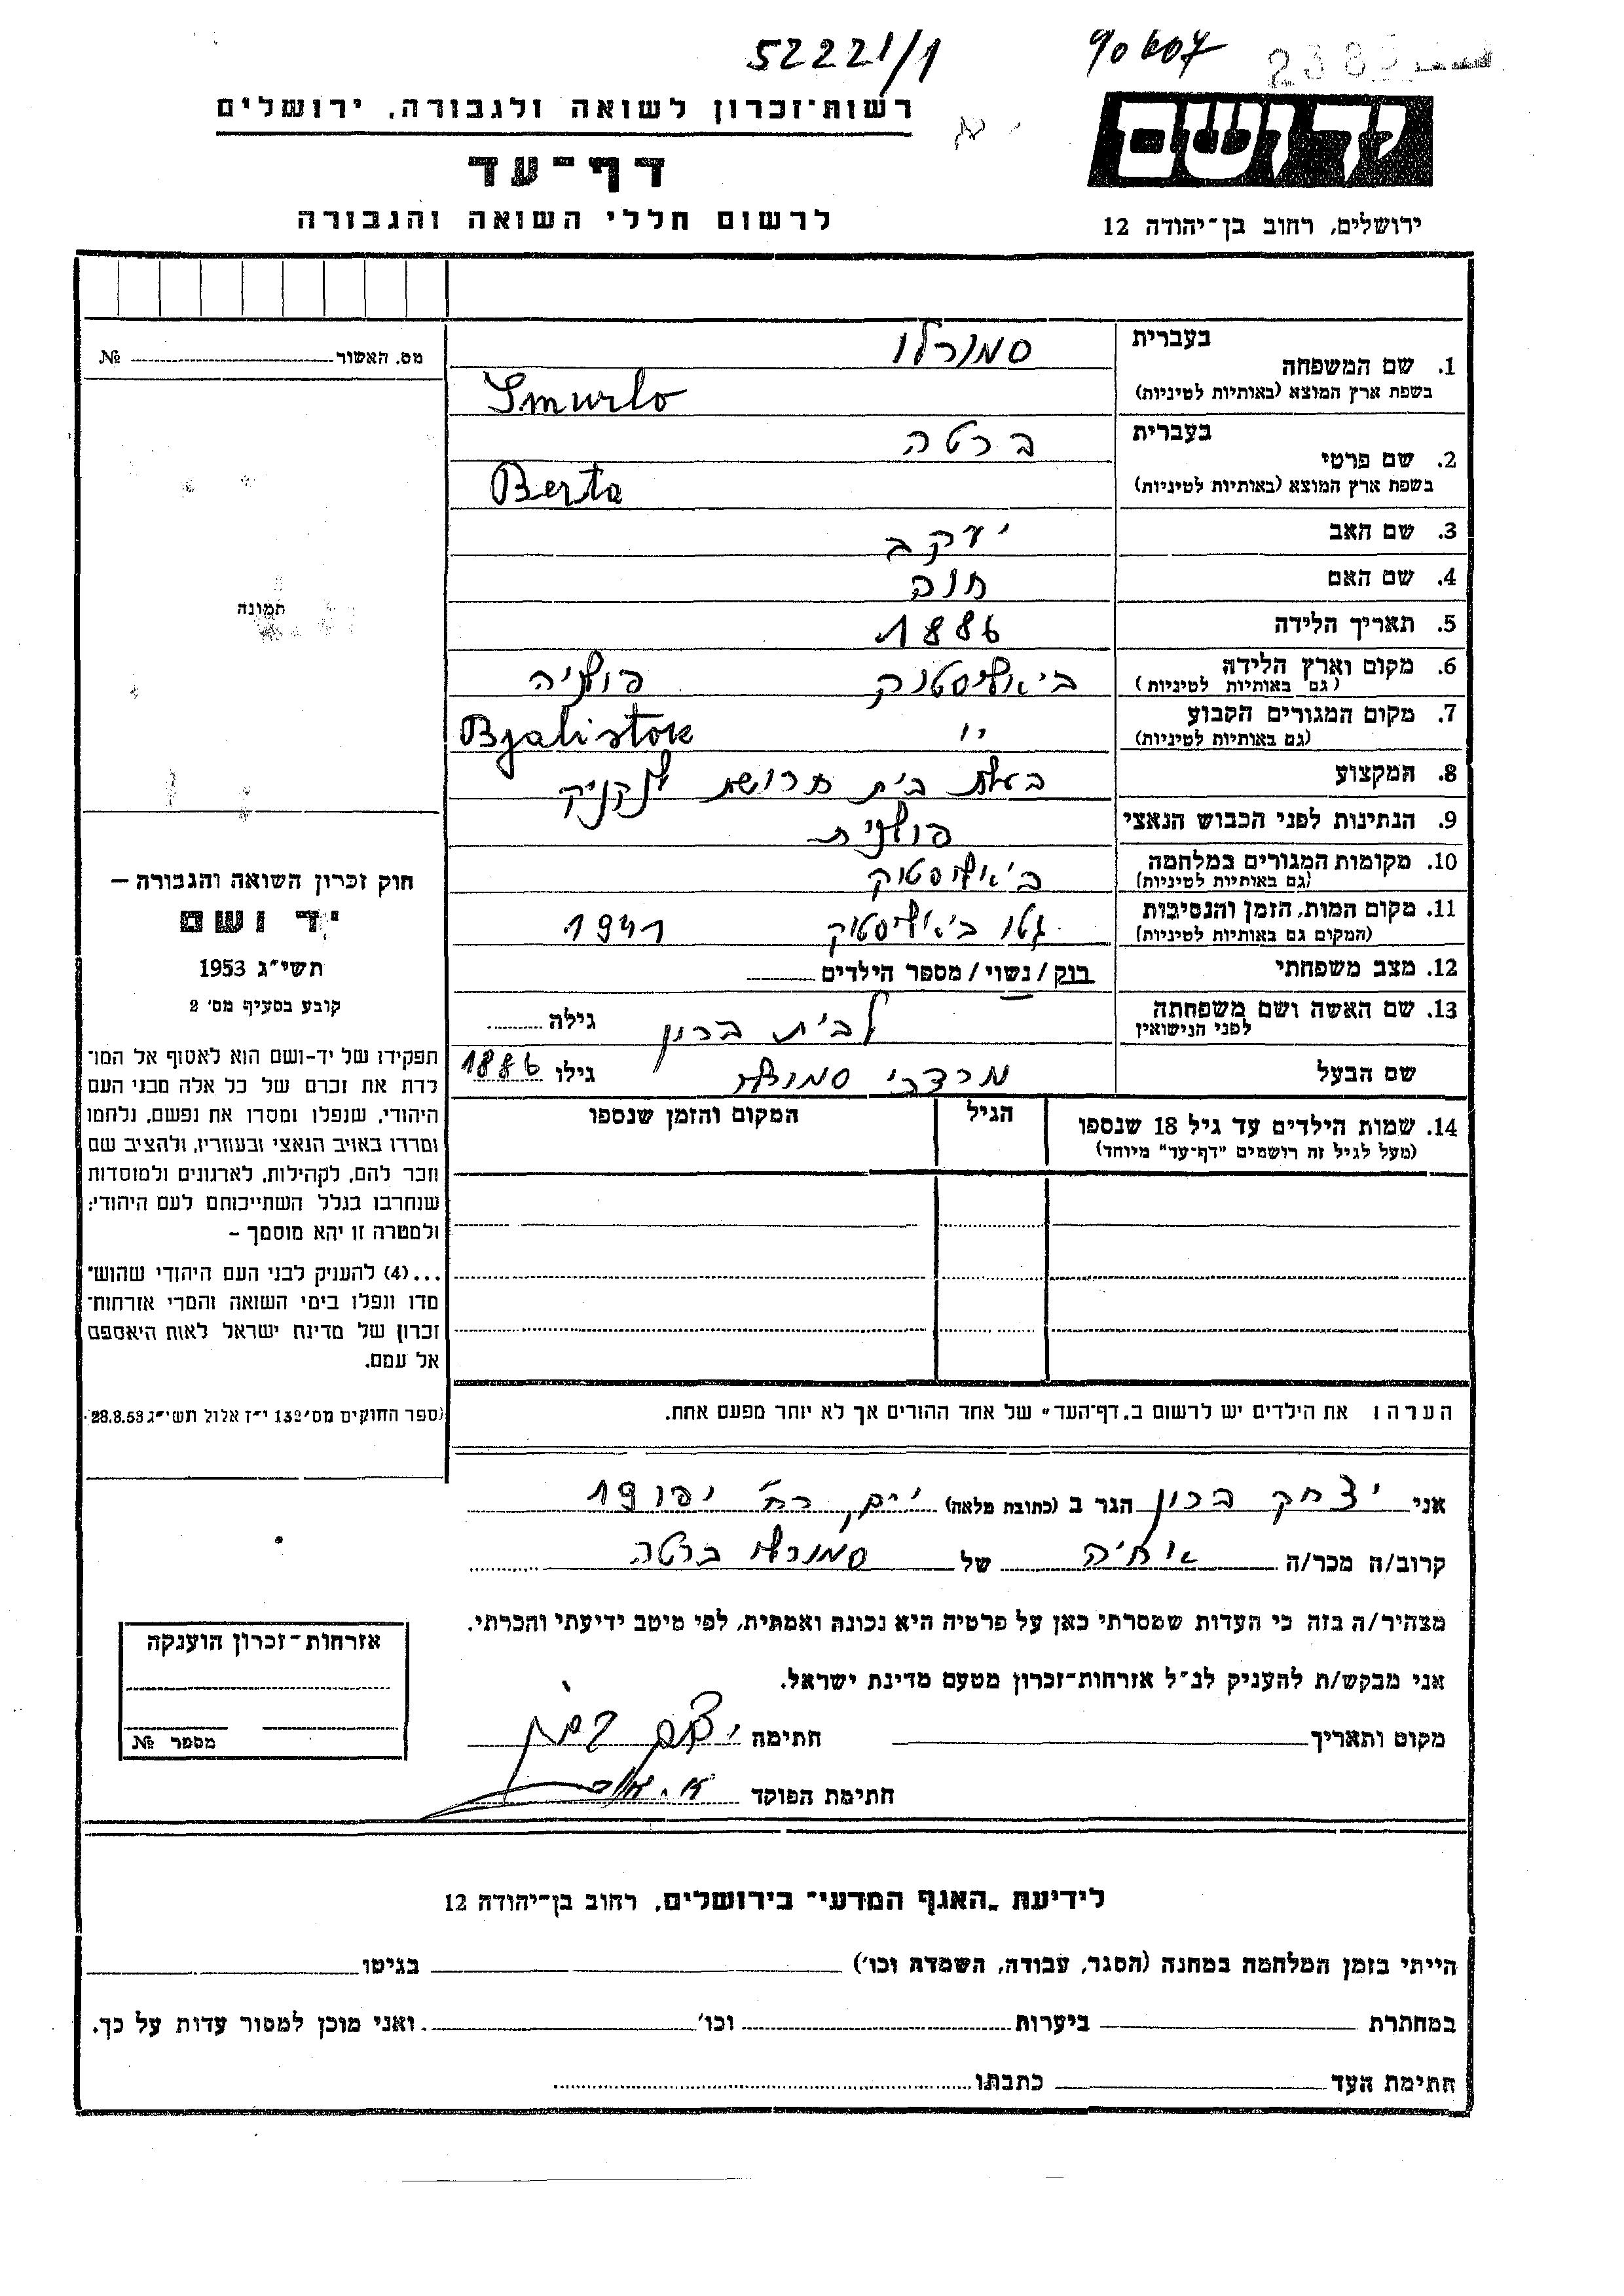 52221/1
90607
יד ושם
רשות־זכרון לשואה ולגבורה, ירושלים
דף־עד
לרשום חללי השואה והגבורה
ירושלים, רחוב בן־יהודה 12
מס. האשור №
תמונה
1. שם המשפחה בעברית סמורלו
בשפת ארץ המוצא (באותיות לטיניות) Smurlo
2. שם פרטי בעברית ברטה
בשפת ארץ המוצא (באותיות לטיניות) Berta
3. שם האב יעקב
4. שם האם חוה
5. תאריך הלידה 1886
6. מקום וארץ הלידה (גם באותיות לטיניות) ביאליסטוק פולניה
7. מקום המגורים הקבוע (גם באותיות לטיניות) " Bjalistok
8. המקצוע בעלת בית חרושת לנקניק
9. הנתינות לפני הכבוש הנאצי פולנית
10. מקומות המגורים במלחמה (גם באותיות לטיניות) ביאליסטוק
11. מקום המות, הזמן והנסיבות (המקום גם באותיות לטיניות) גטו ביאליסטוק 1941
12. מצב משפחתי רווק / נשוי / מספר הילדים
13. שם האשה ושם משפחתה לפני הנישואין לבית ברון גילה
שם הבעל מרדכי סמורלו גילו 1886
14. שמות הילדים עד גיל 18 שנספו הגיל המקום והזמן שנספו
(מעל לגיל זה רושמים "דף־עד" מיוחד)
הערה: את הילדים יש לרשום ב„דף־העד" של אחד ההורים אך לא יותר מפעם אחת.
חוק זכרון השואה והגבורה –
יד ושם
תשי"ג 1953
קובע בסעיף מס' 2
תפקידו של יד-ושם הוא לאסוף אל המו־
לדת את זכרם של כל אלה מבני העם
היהודי, שנפלו ומסרו את נפשם, נלחמו
ומרדו באויב הנאצי ובעוזריו, ולהציב שם
וזכר להם, לקהילות, לארגונים ולמוסדות
שנחרבו בגלל השתייכותם לעם היהודי;
ולמטרה זו יהא מוסמך –
...(4) להעניק לבני העם היהודי שהוש־
מדו ונפלו בימי השואה והמרי אזרחות־
זכרון של מדינת ישראל לאות היאספם
אל עמם.
(ספר החוקים מס' 132 י"ז אלול תשי"ג 28.8.53
אני יצחק ברון הגר ב (כתובת מלאה) י-ם, רח' יפו 19
קרוב/ה מכר/ה אחיה של סמורלו ברטה
מצהיר/ה בזה כי העדות שמסרתי כאן על פרטיה היא נכונה ואמתית, לפי מיטב ידיעתי והכרתי.
אני מבקש/ת להעניק לנ"ל אזרחות־זכרון מטעם מדינת ישראל.
מקום ותאריך חתימה יצחק ברון
חתימת הפוקד
אזרחות־זכרון הוענקה
מספר №
לידיעת „האגף המדעי" בירושלים, רחוב בן־יהודה 12
הייתי בזמן המלחמה במחנה (הסגר, עבודה, השמדה וכו') בגיטו
במחתרת ביערות וכו' ואני מוכן למסור עדות על כך.
חתימת העד כתבתו